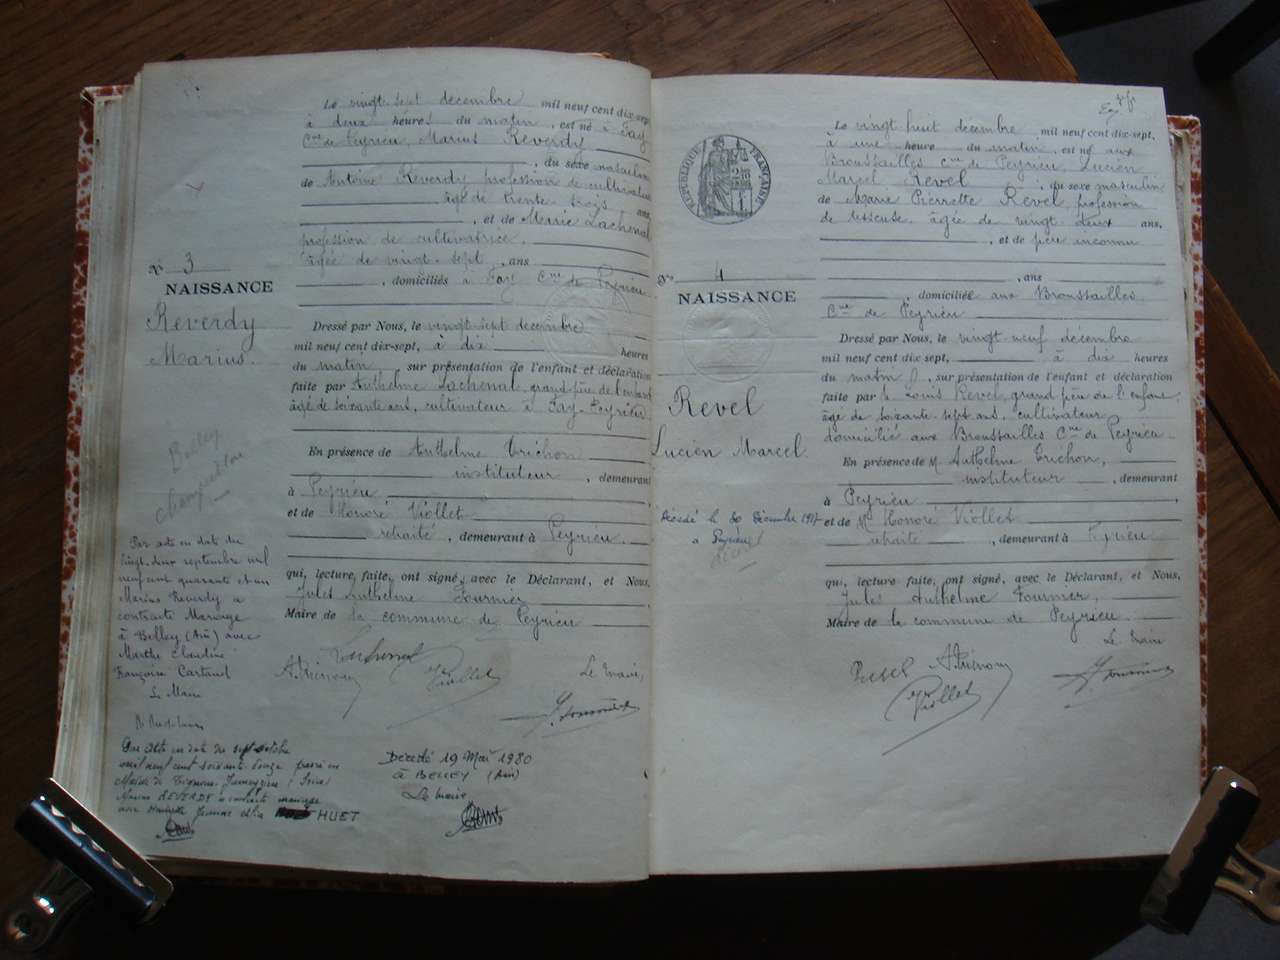 Le vingt sept décembre mil neuf cent dix-sept,
à deux heures du matin, est né à Fay
Cne de Peyrieu, Marius Reverdy
, du sexe masculin
de Antoine Reverdy profession de cultivateur
âgé de trente trois ans,
, et de Marie Lachenal
profession de cultivatrice,
âgée de vingt sept, ans
, domiciliés à Fay Cne de Peyrieu
No 3
NAISSANCE
Reverdy
Marius.
Dressé par Nous, le vingt sept décembre
mil neuf cent dix-sept, à dix heures
du matin, sur présentation de l'enfant et déclaration
faite par Anthelme Lachenal, grand père de l'enfant
âgé de soixante ans, cultivateur à Fay-Peyrieu
En présence de Anthelme Trichon
instituteur, demeurant
à Peyrieu
et de Honoré Viollet
retraité, demeurant à Peyrieu.
qui, lecture faite, ont signé, avec le Déclarant, et Nous,
Jules Anthelme Fournier
Maire de la commune de Peyrieu
Le Maire,
Belley
Par acte en date du
vingt deux septembre mil
neuf cent quarante et un
Marius Reverdy a
contracté Mariage
à Belley (Ain) avec
Marthe Claudine
Françoise Cartand
Le Maire
Par Acte en date du sept octobre
mil neuf cent soixante douze passé en
Mairie de Tignieu Jameyzieu (Isère)
Marius REVERDY a contracté mariage
avec HUET
Décédé 19 Mai 1980
à BELLEY (Ain)
Le maire
RÉPUBLIQUE FRANÇAISE
Le vingt huit décembre mil neuf cent dix-sept,
à une heure du matin, est né aux
Broussailles Cne de Peyrieu, Lucien
Marcel Revel, du sexe masculin
de Marie Pierrette Revel, profession
de tisseuse, âgée de vingt deux ans,
, et de père inconnu
, ans
, domiciliée aux Broussailles
Cne de Peyrieu
No 4
NAISSANCE
Revel
Lucien Marcel.
Décédé le 30 Décembre 1917
à Peyrieu
décédé
Dressé par Nous, le vingt neuf décembre
mil neuf cent dix-sept, à dix heures
du matin, sur présentation de l'enfant et déclaration
faite par Louis Revel, grand père de l'enfant,
âgé de soixante sept ans, cultivateur
domicilié aux Broussailles Cne de Peyrieu
En présence de M. Anthelme Trichon,
instituteur, demeurant
à Peyrieu
et de Mr Honoré Viollet
retraité, demeurant à Peyrieu
qui, lecture faite, ont signé, avec le Déclarant, et Nous,
Jules Anthelme Fournier,
Maire de la commune de Peyrieu.
Le Maire
Revel
Viollet